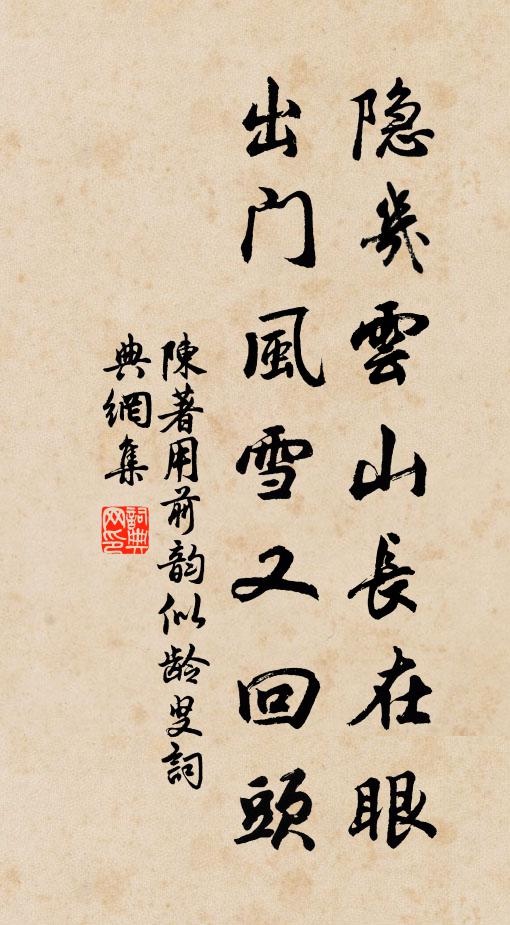 隐几雲山長在眼
出门風雪又回頭
陳著用前韵似龄叟詞
典網集
詞典网印